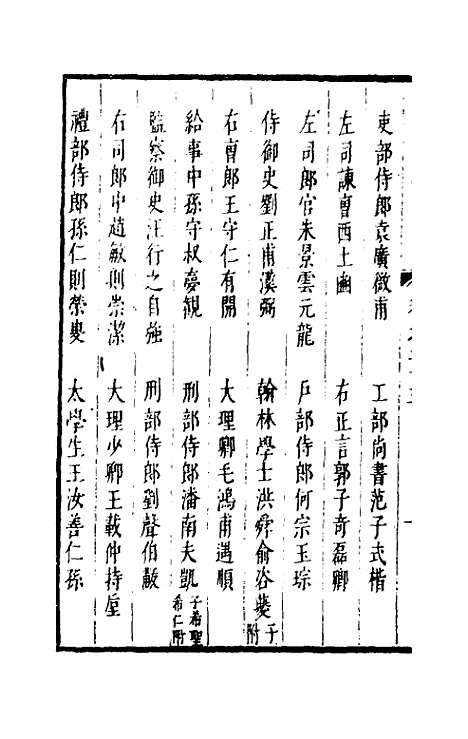 吏部侍郎袁廣微甫 工部尚書范子式楷
左司諫曹西土豳 右正言郭子奇磊卿
左司郎官朱景雲元龍 戶部侍郎何宗玉琮
侍御史劉正甫漢弼 翰林學士洪舜俞咨夔子附
右曹郎王守仁有開 大理卿毛鴻甫遇順
給事中孫守叔夢觀 刑部侍郎潘南夫凱子希聖希仁附
監察御史汪行之自強 刑部侍郎劉聲伯黻
右司郎中趙敏則崇潔 大理少卿王載仲持垕
禮部侍郎孫仁則榮叟 太學生王汝善仁孫